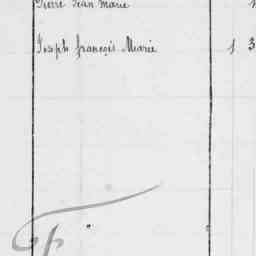 Pierre Jean Marie
Joseph françois Marie 1 3